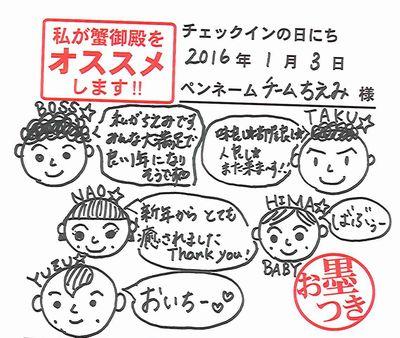 私が蟹御殿を
オススメ
します!!
チェックインの日にち
2016年 1月 3日
ペンネーム チームちえみ 様
BOSS☆
私がちえみです。
みんな大満足で
良い1年になり
そうです
TAKU☆
味良し☆部屋良し☆
人良し☆
また来ます!!
NAO☆
新年から とても
癒されました
Thank you!
HIMA☆
BABY
ばぶぅー
YUZU☆
おいちー♡♡
お墨
つき